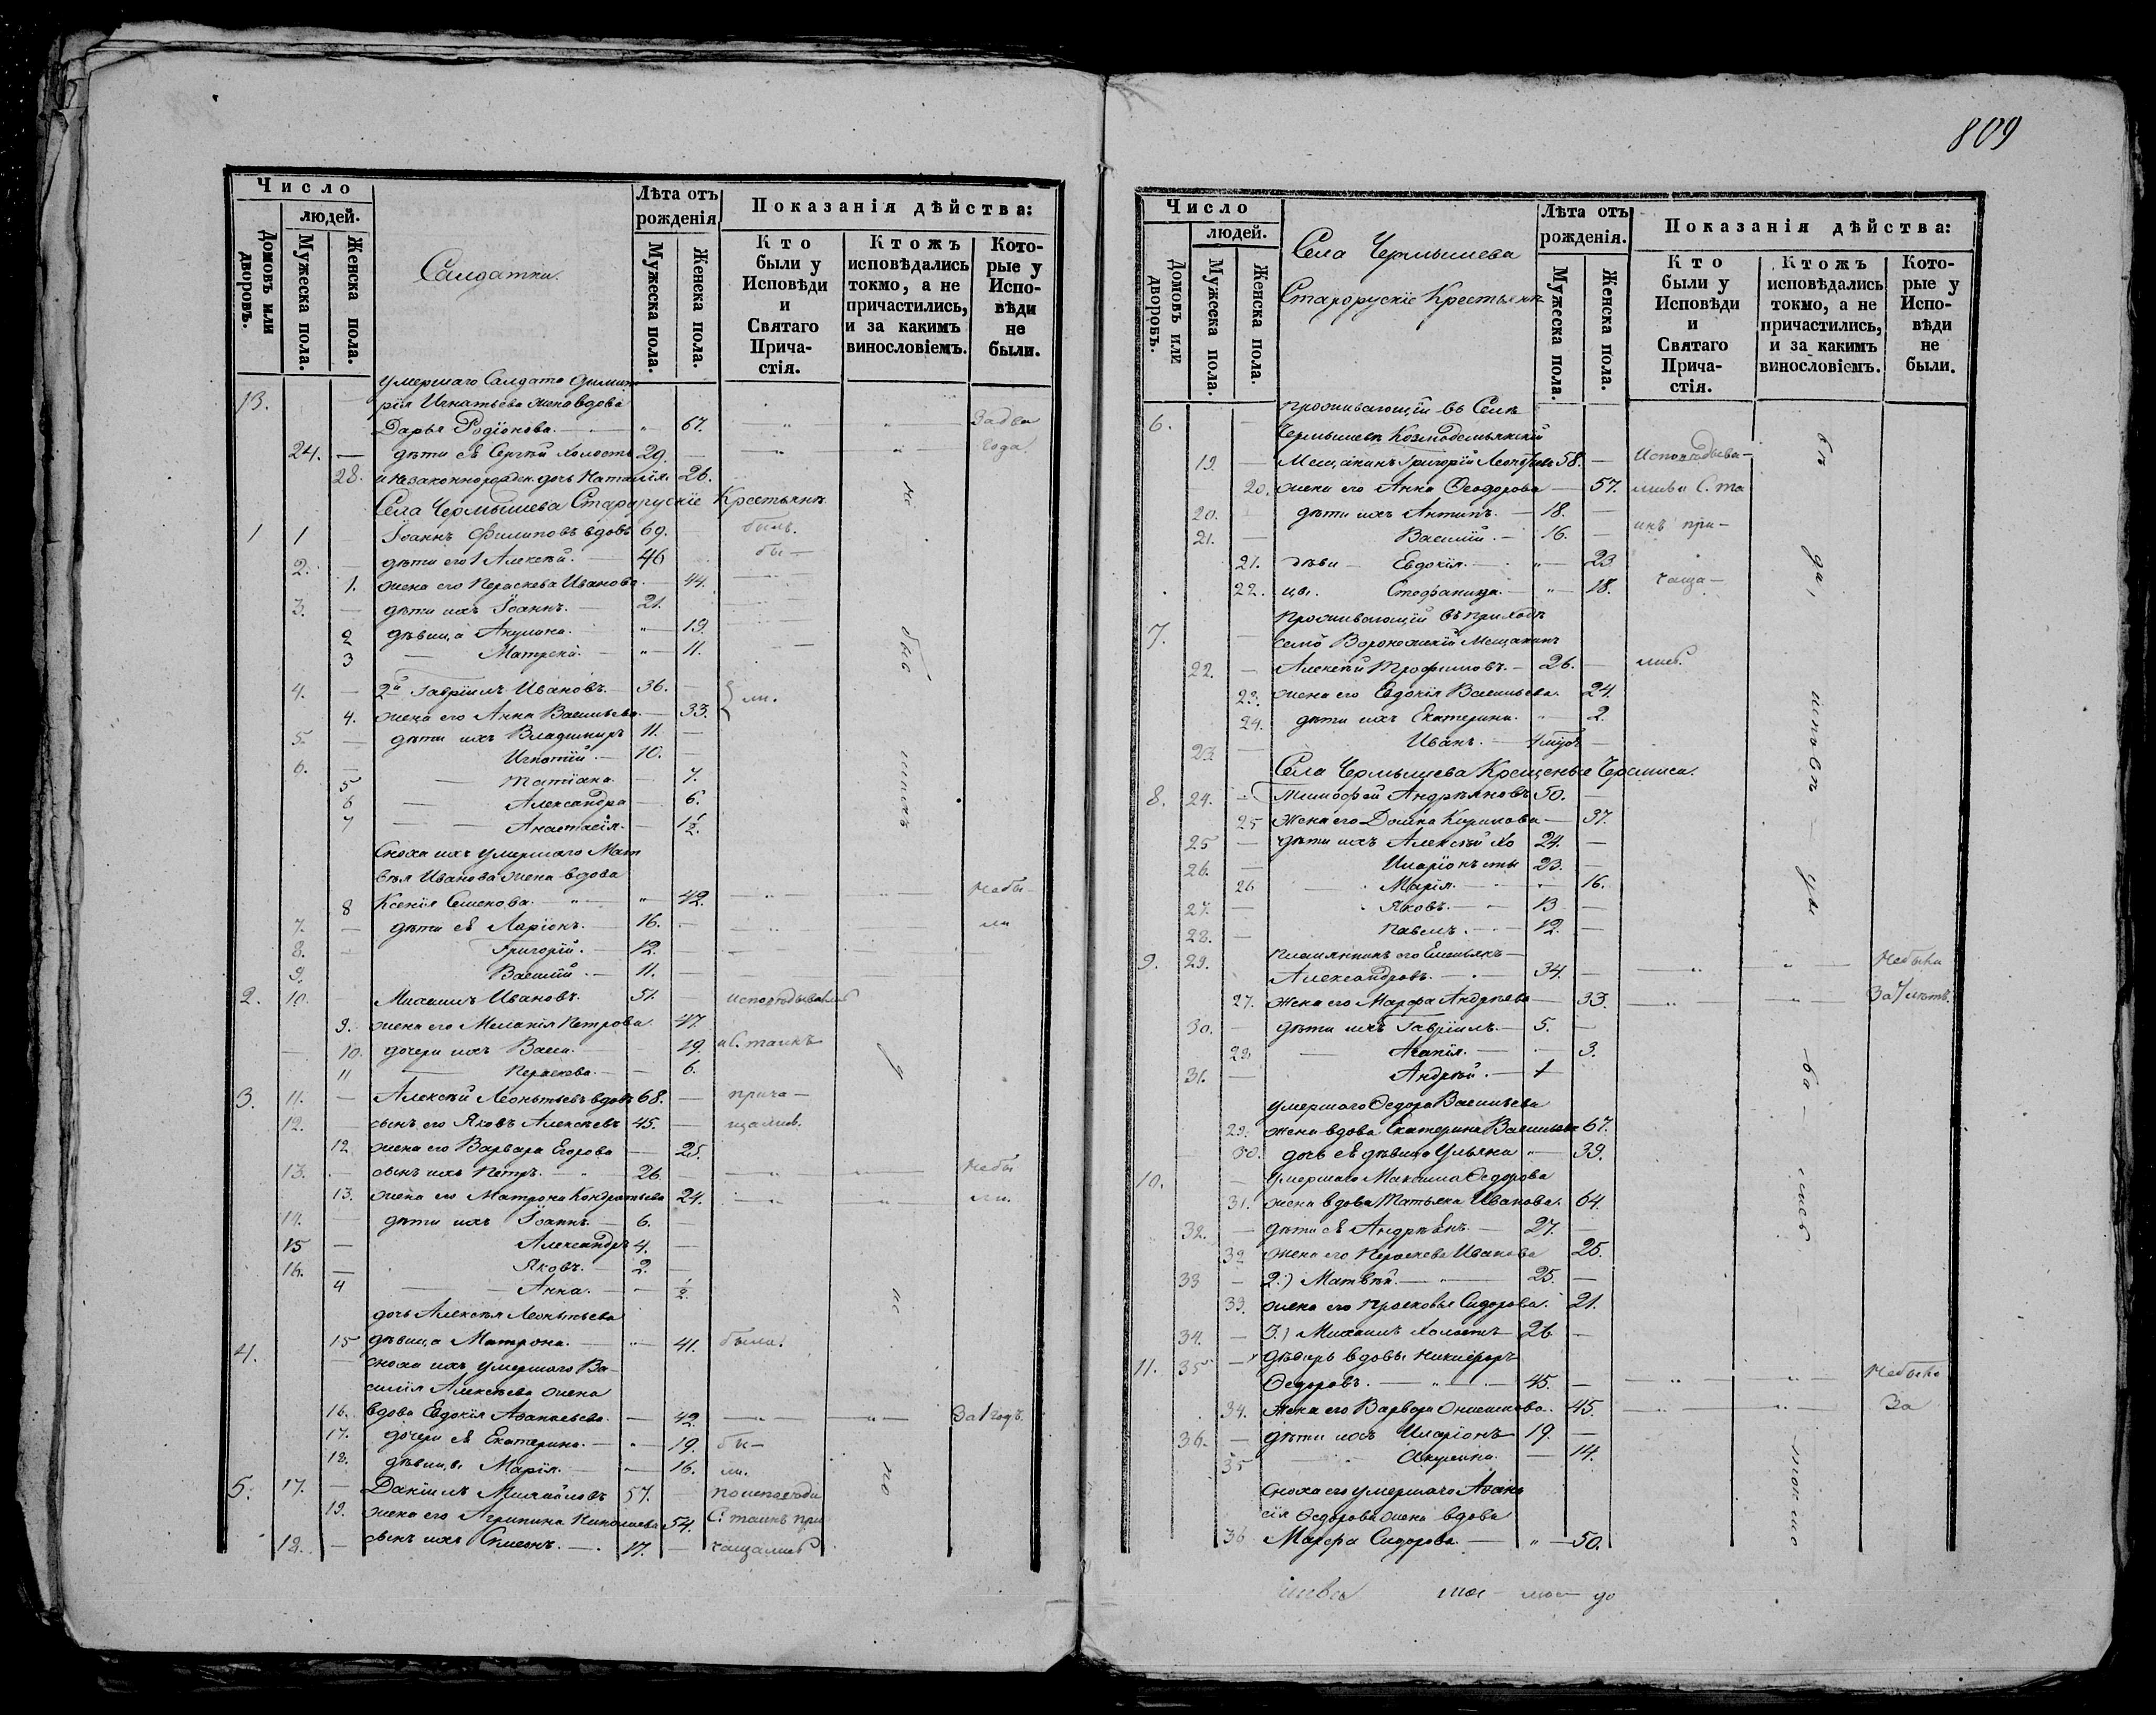 809
Число
людей.
Домовъ или дворовъ.
Мужеска пола.
Женска пола.
Салдатки.
Лѣта отъ рожденія
Мужеска пола.
Женска пола.
Показанія дѣйства:
Кто были у Исповѣди и Святаго Причастія.
Ктожъ исповѣдались токмо, а не причастились, и за какимъ винословіемъ.
Которые у Исповѣди не были.
умершаго Салдата Димит
13. рія Игнатьева жена вдова
Дарья Родіонова. 67. За два
24. дѣти её Сергѣй холостъ 29. года
28. и незаконнорожден. дочь Наталія. 26.
Села Чермышева Старорускіе Крестьяне
1 1 Іоаннъ Филиповъ вдовъ 69. былъ.
2. дѣти его 1 Алексѣй. 46 бы-
1. жена его Параскева Иванова. 44.
3. дѣти ихъ Іоаннъ. 21.
2 дѣвица Акулина. 19.
3 Матрена. 11.
4. 2й Гавріилъ Ивановъ. 36. ли.
4. жена его Анна Васильева. 33.
5. дѣти ихъ Владимиръ 11.
6. Игнатій. 10.
5 Татіана. 7.
6 Александра 6.
7 Анастасія. 1½.
Сноха ихъ умершаго Мат
вѣя Иванова жена вдова
8 Ксенія Семенова. 42. небы-
7. дѣти её Ларіонъ. 16. ли
8. Григорій. 12.
9. Василій. 11.
2. 10. Михаилъ Ивановъ. 51. исповѣдывалсь
9. жена его Меланія Петрова 47.
10. дочери ихъ Васи. 19. и С. таинъ
11 Параскева. 6.
3. 11. Алексѣй Леонтьевъ вдовъ 68. прича-
12. сынъ его Яковъ Алексѣевъ 45. щались.
12 жена его Варвара Егорова 25.
13. сынъ ихъ Петръ. 26. небы
13. жена его Матрона Кондратьева 24. ли.
14. дѣти ихъ Іоаннъ. 6.
15 Александръ 4.
16. Яковъ. 2.
4 Анна. ½.
дочь Алексѣя Леонтьева
15 дѣвица Матрона. 41. была.
4. сноха ихъ умершаго Ва-
силія Алексѣева жена
16. вдова Евдокія Аѳанасьева. 42. За 1 годъ.
17. дочери её Екатерина. 19. бы-
18. дѣвицы Марія. 16. ли.
5. 17. Даніилъ Михайловъ 57.
19. жена его Агрипина Николаева 54. С. таинъ при
18. сынъ ихъ Симеонъ. 17. чащались
Число
людей.
Домовъ или дворовъ.
Мужеска пола.
Женска пола.
Села Чермышева
Старорускіе Крестьяне
Лѣта отъ рожденія.
Мужеска пола.
Женска пола.
Показанія дѣйства:
Кто были у Исповѣди и Святаго Причастія.
Ктожъ исповѣдались токмо, а не причастились, и за какимъ винословіемъ.
Которые у Исповѣди не были.
проживающій въ Селѣ
6. Чермышевѣ Козмодемьянскій
19. Мещанинъ Григорій 58. Исповѣдыва-
20. жена его Анна Ѳеодорова 57. лись и С. та
20. дѣти ихъ Антипъ. 18.
21. Василій. 16. инъ при-
21. дѣви- Евдокія. 23
22. цы. Стефанида. 18. чаща-
Проживающій въ приходѣ
7. семъ Воронежскій Мещанинъ
22. Алексѣй Трофимовъ. 26. лись.
23. жена его Евдокія Васильева. 24.
24. дѣти ихъ Екатерина. 2.
23 Иванъ.
Села Чермышева Крещеные Черемиса.
8. 24. Тимофей Андреяновъ 50.
25 Жена его Домна Кирилова 37.
25 дѣти ихъ Алексѣй хо 24.
26. Иларіонъ сты 23.
26 Марія. 16.
27. Яковъ. 13
28. Павелъ. 12.
9. 29. племянникъ его Емельянъ
Александровъ. 34. небыли
27. Жена его Марфа Андрѣева 33. За 7 лѣтъ.
30. дѣти ихъ Гавріилъ. 5.
28 Агапія. 3.
31. Андрей. 1
умершаго Ѳедора Васильева
29. жена вдова Екатерина Васильева 67.
30. дочь её дѣвица Ульяна 39.
10. Умершаго Максима Ѳедорова
31. жена вдова Татьяна Иванова. 64.
32. дѣти её Андреянъ. 27.
32 жена его Параскева Иванова 25.
33 2.) Матвѣй. 25.
33. жена его Прасковья Сидорова. 21.
34. 3.) Михаилъ холостъ 26
11. 35 дѣверь вдовы Никифоръ
Ѳедоровъ. 45. небыли
34. Жена его Варвара Онисимова. 45. За
36. дѣти ихъ Иларіонъ 19.
35 Акулина. 14.
Сноха его умершаго Аѳана
сія Ѳедорова жена вдова
36 Марфа Сидорова. 50.